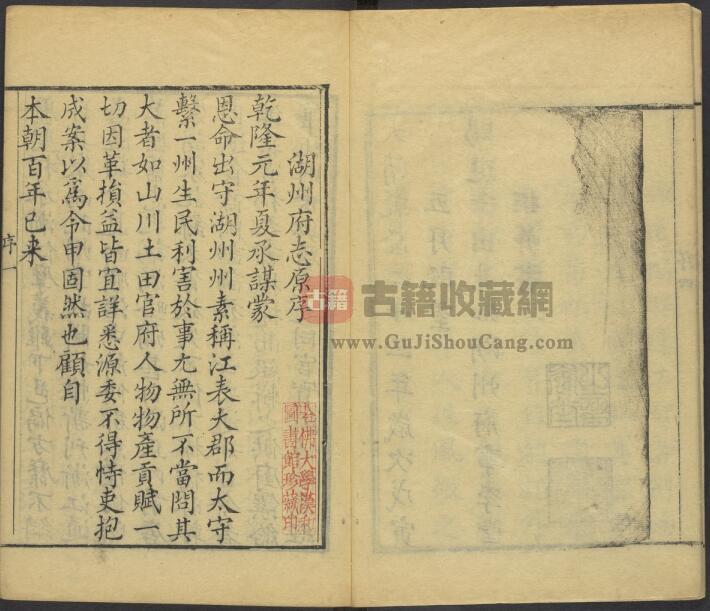 湖州府志原序
乾隆元年夏承謀蒙
恩命出守湖州州素稱江表大郡而太守
繫一州生民利害於事尤無所不當問其
大者如山川土田官府人物物產貢賦一
切因革損益皆宜詳悉源委不得恃吏抱
成案以爲令甲固然也顧自
本朝百年已來
序一
哈佛大學漢和
圖書館珍藏印
古籍
古籍收藏網
www.GuJiShouCang.com